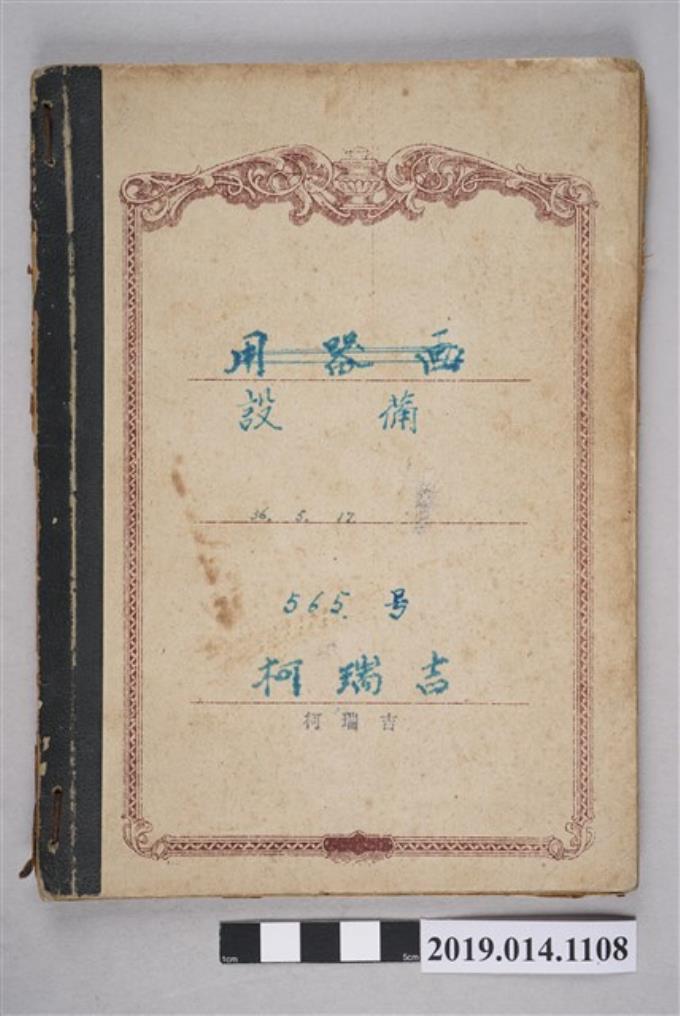 用器画
設備
36. 5. 17.
565. 号
柯瑞吉
柯瑞吉
1cm
5cm
2019.014.1108